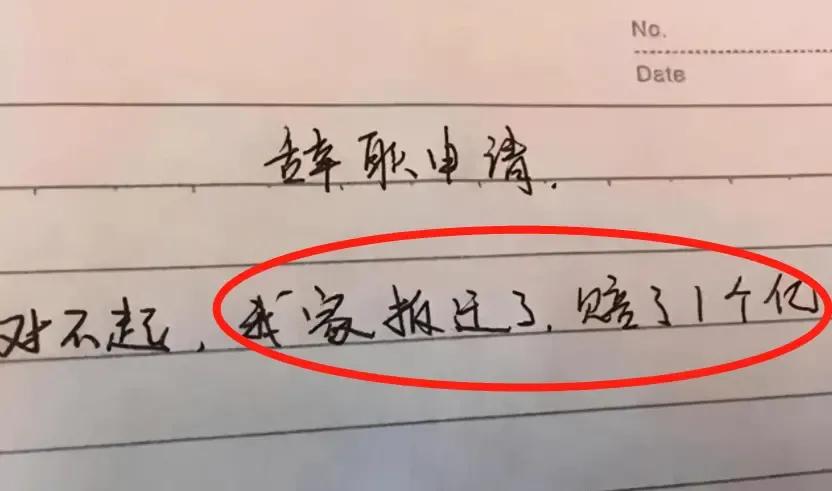 No.
Date
辞职申请.
对不起, 我家拆迁了, 赔了1个亿